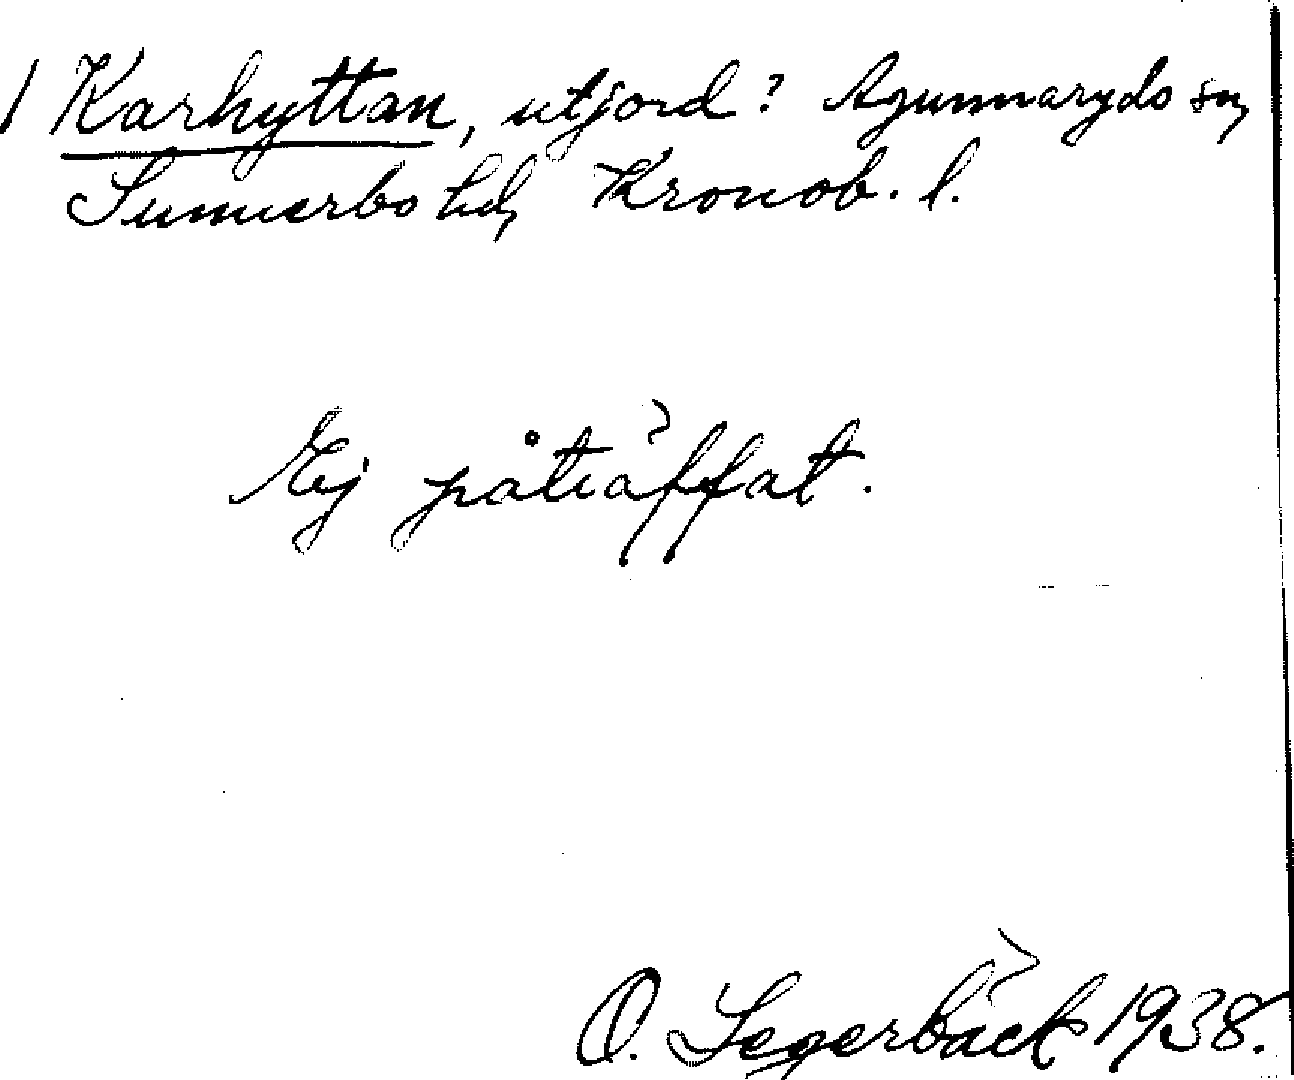 1 Karhyttan, utjord? Agunnaryds sn,
Sunnerbo hd, Kronob. l.
Ej påträffat.
O. Segerbäck 1938.